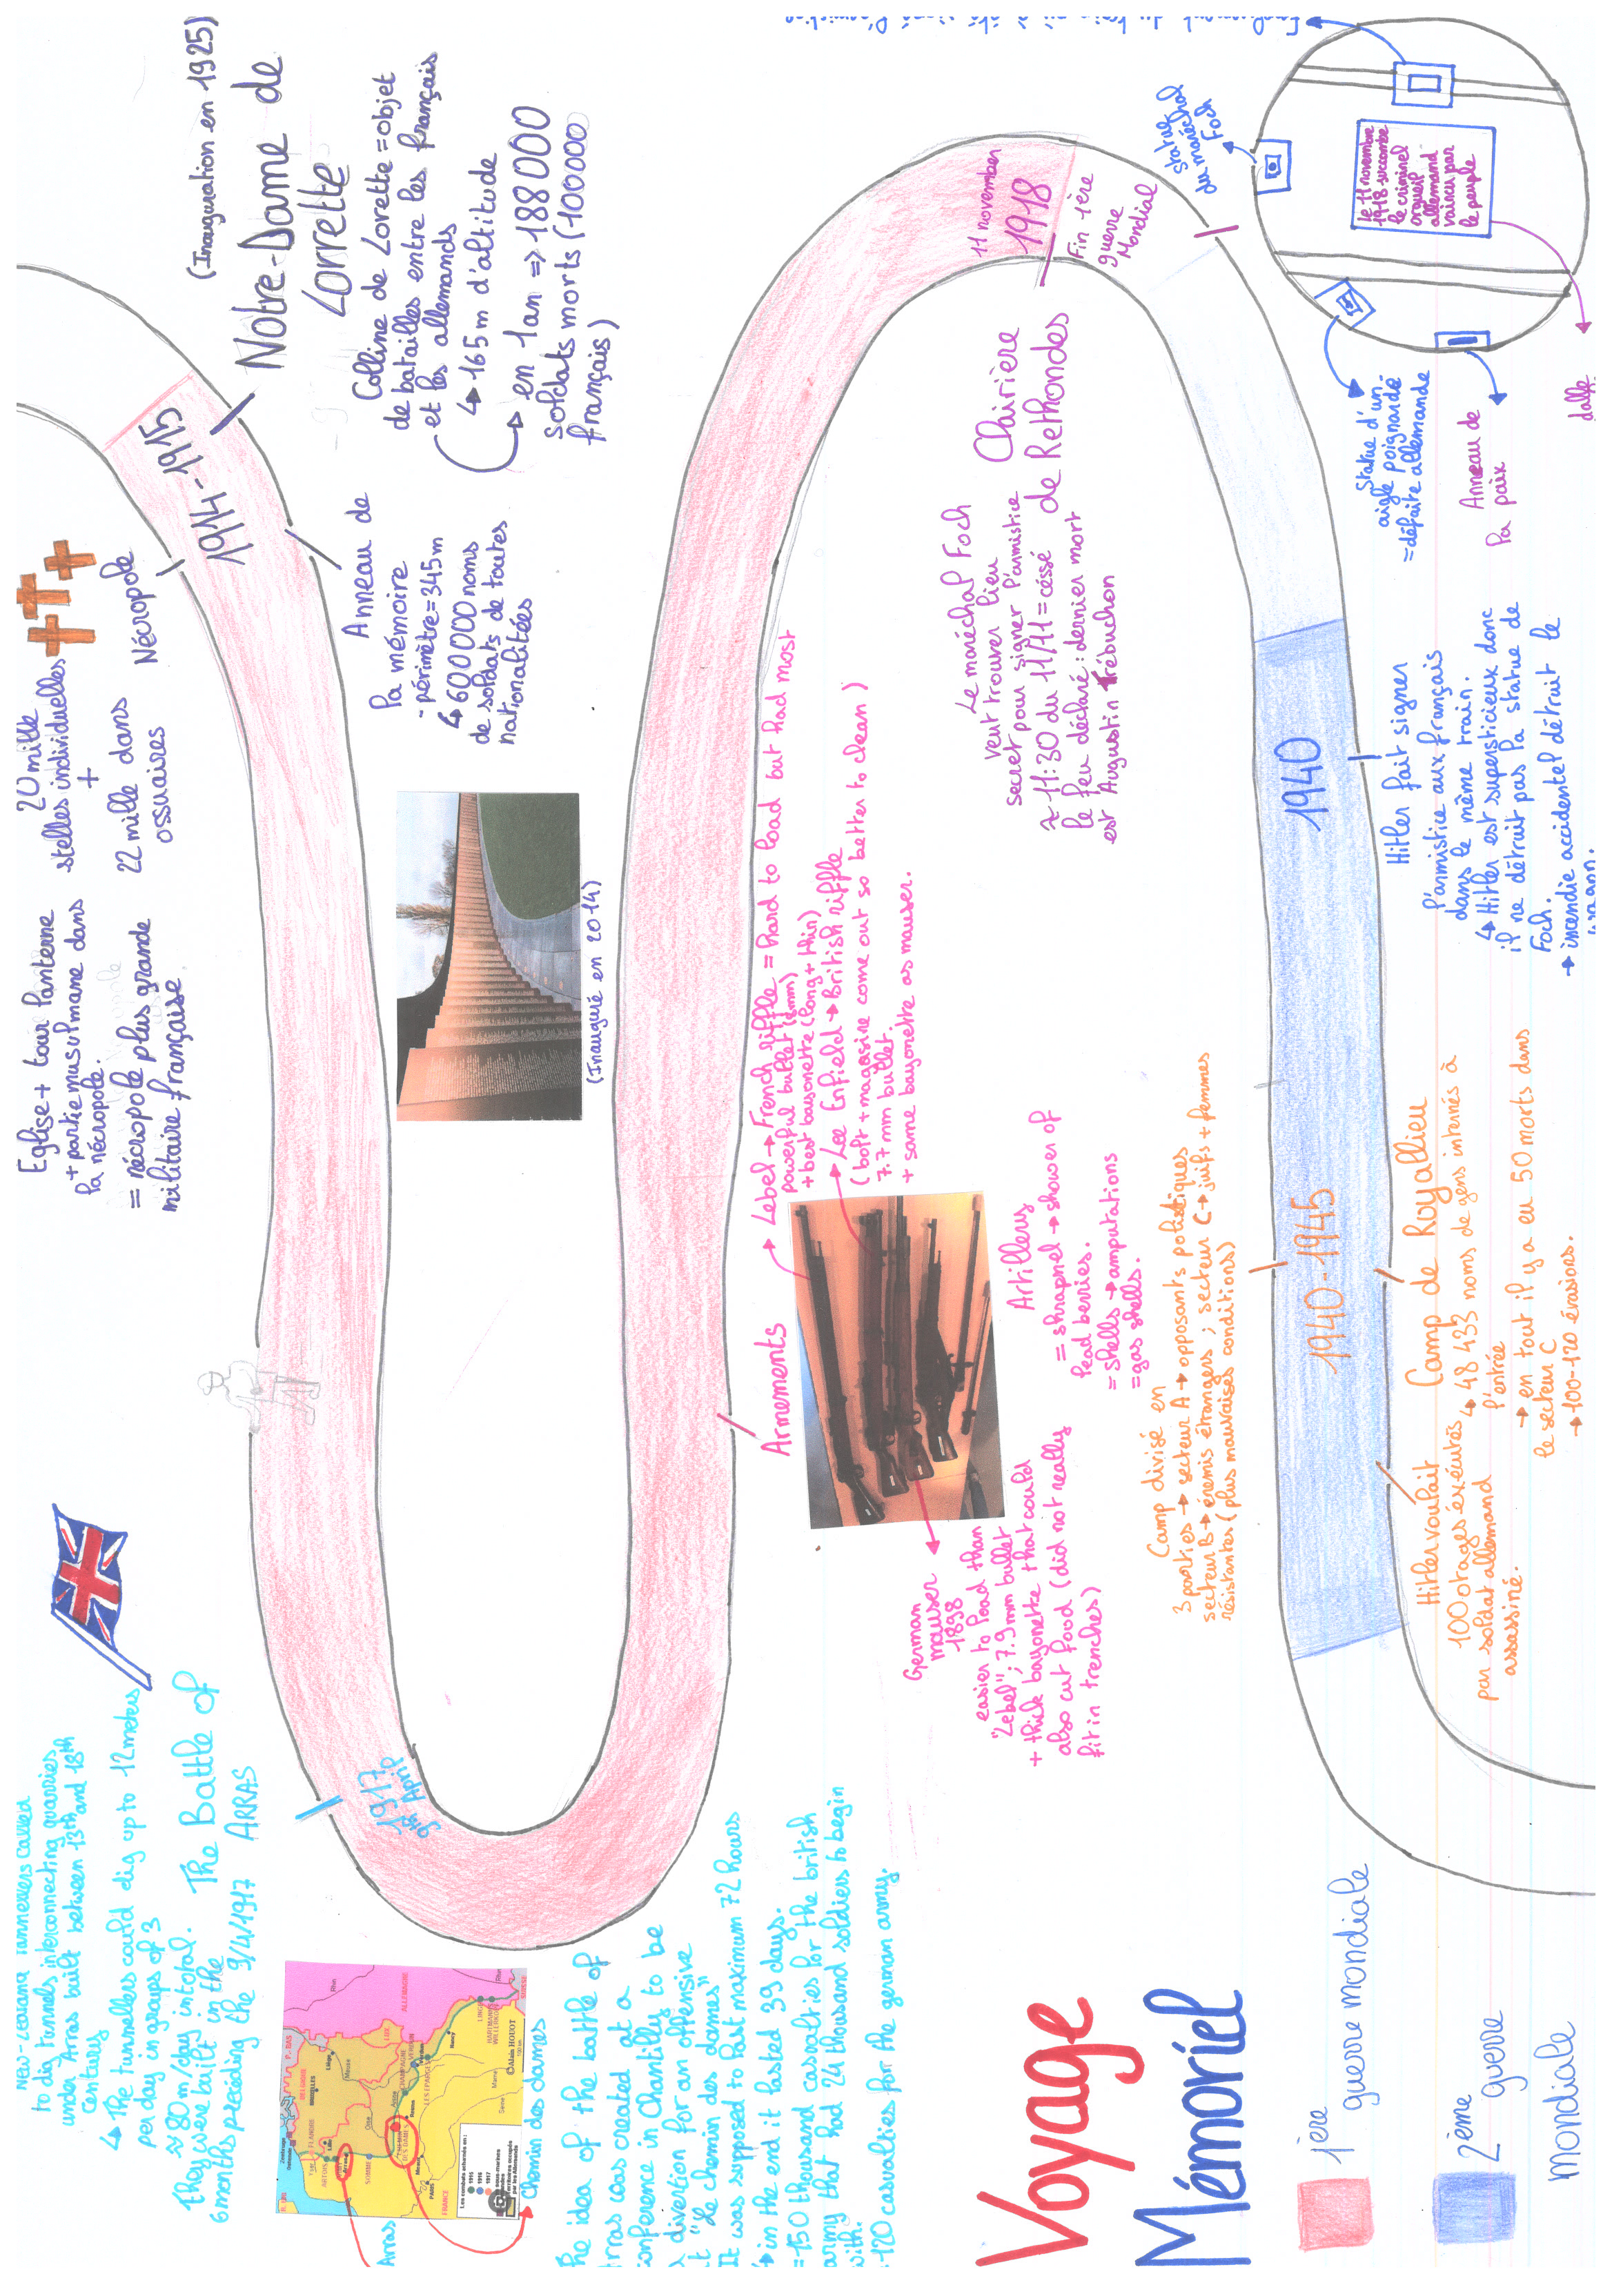 New-Zealand Tunnellers called
to dig tunnels interconnecting quarries
under Arras built between 13th and 18th
century
↳ The tunnellers could dig up to 12 meters
per day in groups of 3
≈ 80 m/day in total.
They were built in the
6 months preceding the 9/4/1917
The Battle of
ARRAS
Arras
Chemin des dames
he idea of the battle of
rras was created at a
onference in Chantilly to be
diversion for an offensive
t "le chemin des dames"
It was supposed to last maximum 72 hours
↳ in the end it lasted 39 days.
= 150 thousand casualties for the british
army that had 24 thousand soldiers to begin
with.
120 casualties for the german army.
1917
9th April
Eglise + tour lanterne
+ partie musulmane dans
la nécropole.
= nécropole plus grande
militaire française
20 mille
stelles individuelles
+
22 mille dans
ossuaires
Nécropole
1914-1915
(Inauguration en 1925)
Notre-Dame de
Lorrette
Colline de Lorette = objet
de batailles entre les français
et les allemands
↳ 165 m d'altitude
→ en 1 an => 188 000
soldats morts (100 000
français)
Anneau de
la mémoire
- périmètre = 345 m
↳ 600 000 noms
de soldats de toutes
nationalitées
(Inauguré en 2014)
Armements
→ Lebel → French riffle = hard to load but had most
powerful bullet (8mm)
+ best bayonette (long + thin)
→ Lee Enfield → British riffle
(bolt + magasine come out so better to clean)
7.7 mm bullet.
+ same bayonette as mauser.
German
mauser
1898
easier to load than
"Lebel"; 7.9 mm bullet
+ thick bayonette that could
also cut food (did not really
fit in trenches)
Artillery
= shrapnel → shower of
lead berries.
= shells → amputations
= gas shells.
11 november
1918
Fin 1ère
guerre
Mondial
Clairière
de Rethondes
Le maréchal Foch
veut trouver lieu
secret pour signer l'armistice
≈ 11:30 du 11/11 = céssé
le feu déclaré: dernier mort
est Augustin Trébuchon
Statue
du maréchal
Foch
le 11 novembre
1918 succombe
le criminel
orgueil
allemand
vaincu par
le peuple
dalle
Statue d'un
aigle poignardé
= défaite allemande
Anneau de
la paix
1940
Hitler fait signer
l'armistice aux français
dans le même train.
↳ Hitler est supersticieux donc
il ne détruit pas la statue de
Foch.
→ incendie accidentel détruit le
wagon.
1940-1945
Camp divisé en
3 parties → secteur A → opposants politiques
secteur B → énemis étrangers ; secteur C → juifs + femmes
résistantes (plus mauvaises conditions)
Camp de Royallieu
↳ 48 433 noms de gens internés à
l'entrée
→ en tout il y a eu 50 morts dans
le secteur C
→ 100-120 évasions.
Hitler voulait
100 otages éxécutés
par soldat allemand
assassiné.
Voyage
Mémoriel
1ère
guerre mondiale
2ème
guerre
mondiale